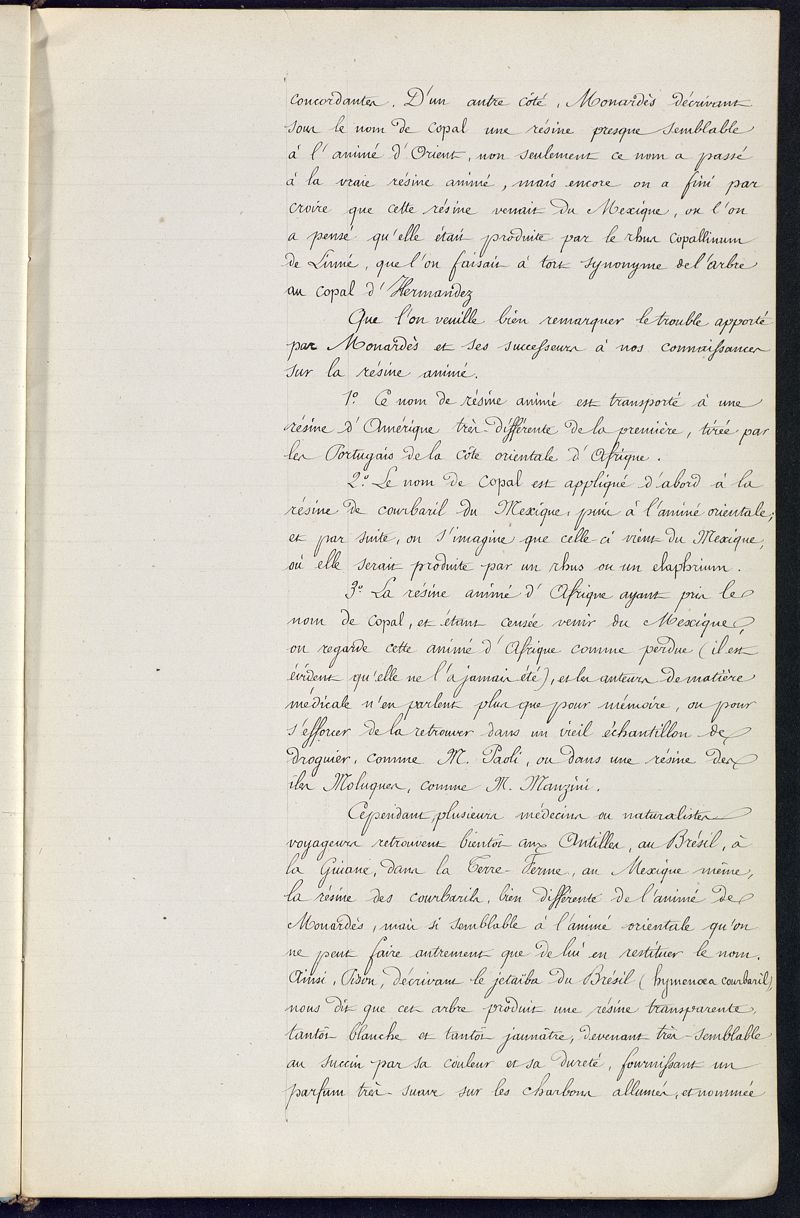 concordantes. D'un autre côté, Monardès décrivant
sous le nom de copal une résine presque semblable
à l'animé d'Orient, non seulement ce nom a passé
à la vraie résine animé, mais encore on a fini par
croire que cette résine venait du Mexique, ou l'on
a pensé qu'elle était produite par le rhus copallinum
de Linné, que l'on faisait à tort synonyme de l'arbre
au copal d'Hermandez
Que l'on veuille bien remarquer le trouble apporté
par Monardès et ses successeurs à nos connaissances
sur la résine animé.
1º. Ce nom de résine animé est transporté à une
résine d'Amérique très-différente de la première, tirée par
les Portugais de la côte orientale d'Afrique.
2º. Le nom de copal est appliqué d'abord à la
résine de courbaril du Mexique, puis à l'animé orientale;
et par suite, on s'imagine que celle-ci vient du Mexique,
où elle serait produite par un rhus ou un elaphrium.
3º. La résine animé d'Afrique ayant pris le
nom de copal, et étant censée venir du Mexique,
on regarde cette animé d'Afrique comme perdue (il est
évident qu'elle ne l'a jamais été), et les auteurs de matière
médicale n'en parlent plus que pour mémoire, ou pour
s'efforcer de la retrouver dans un vieil échantillon de
droguier, comme M. Paoli, ou dans une résine des
îles Moluques, comme M. Manzini.
Cependant, plusieurs médecins ou naturalistes
voyageurs retrouvent bientôt aux Antilles, au Brésil, à
la Guiane, dans la Terre-Ferme, au Mexique même,
la résine des courbarils, bien différente de l'animé de
Monardès, mais si semblable à l'animé orientale qu'on
ne peut faire autrement que de lui en restituer le nom.
Ainsi, Pison, décrivant le jetaïba du Brésil (hymenœa courbaril),
nous dit que cet arbre produit une résine transparente,
tantôt blanche et tantôt jaunâtre, devenant très-semblable
au succin par sa couleur et sa dureté, fournissant un
parfum très-suave sur les charbons allumés, et nommée